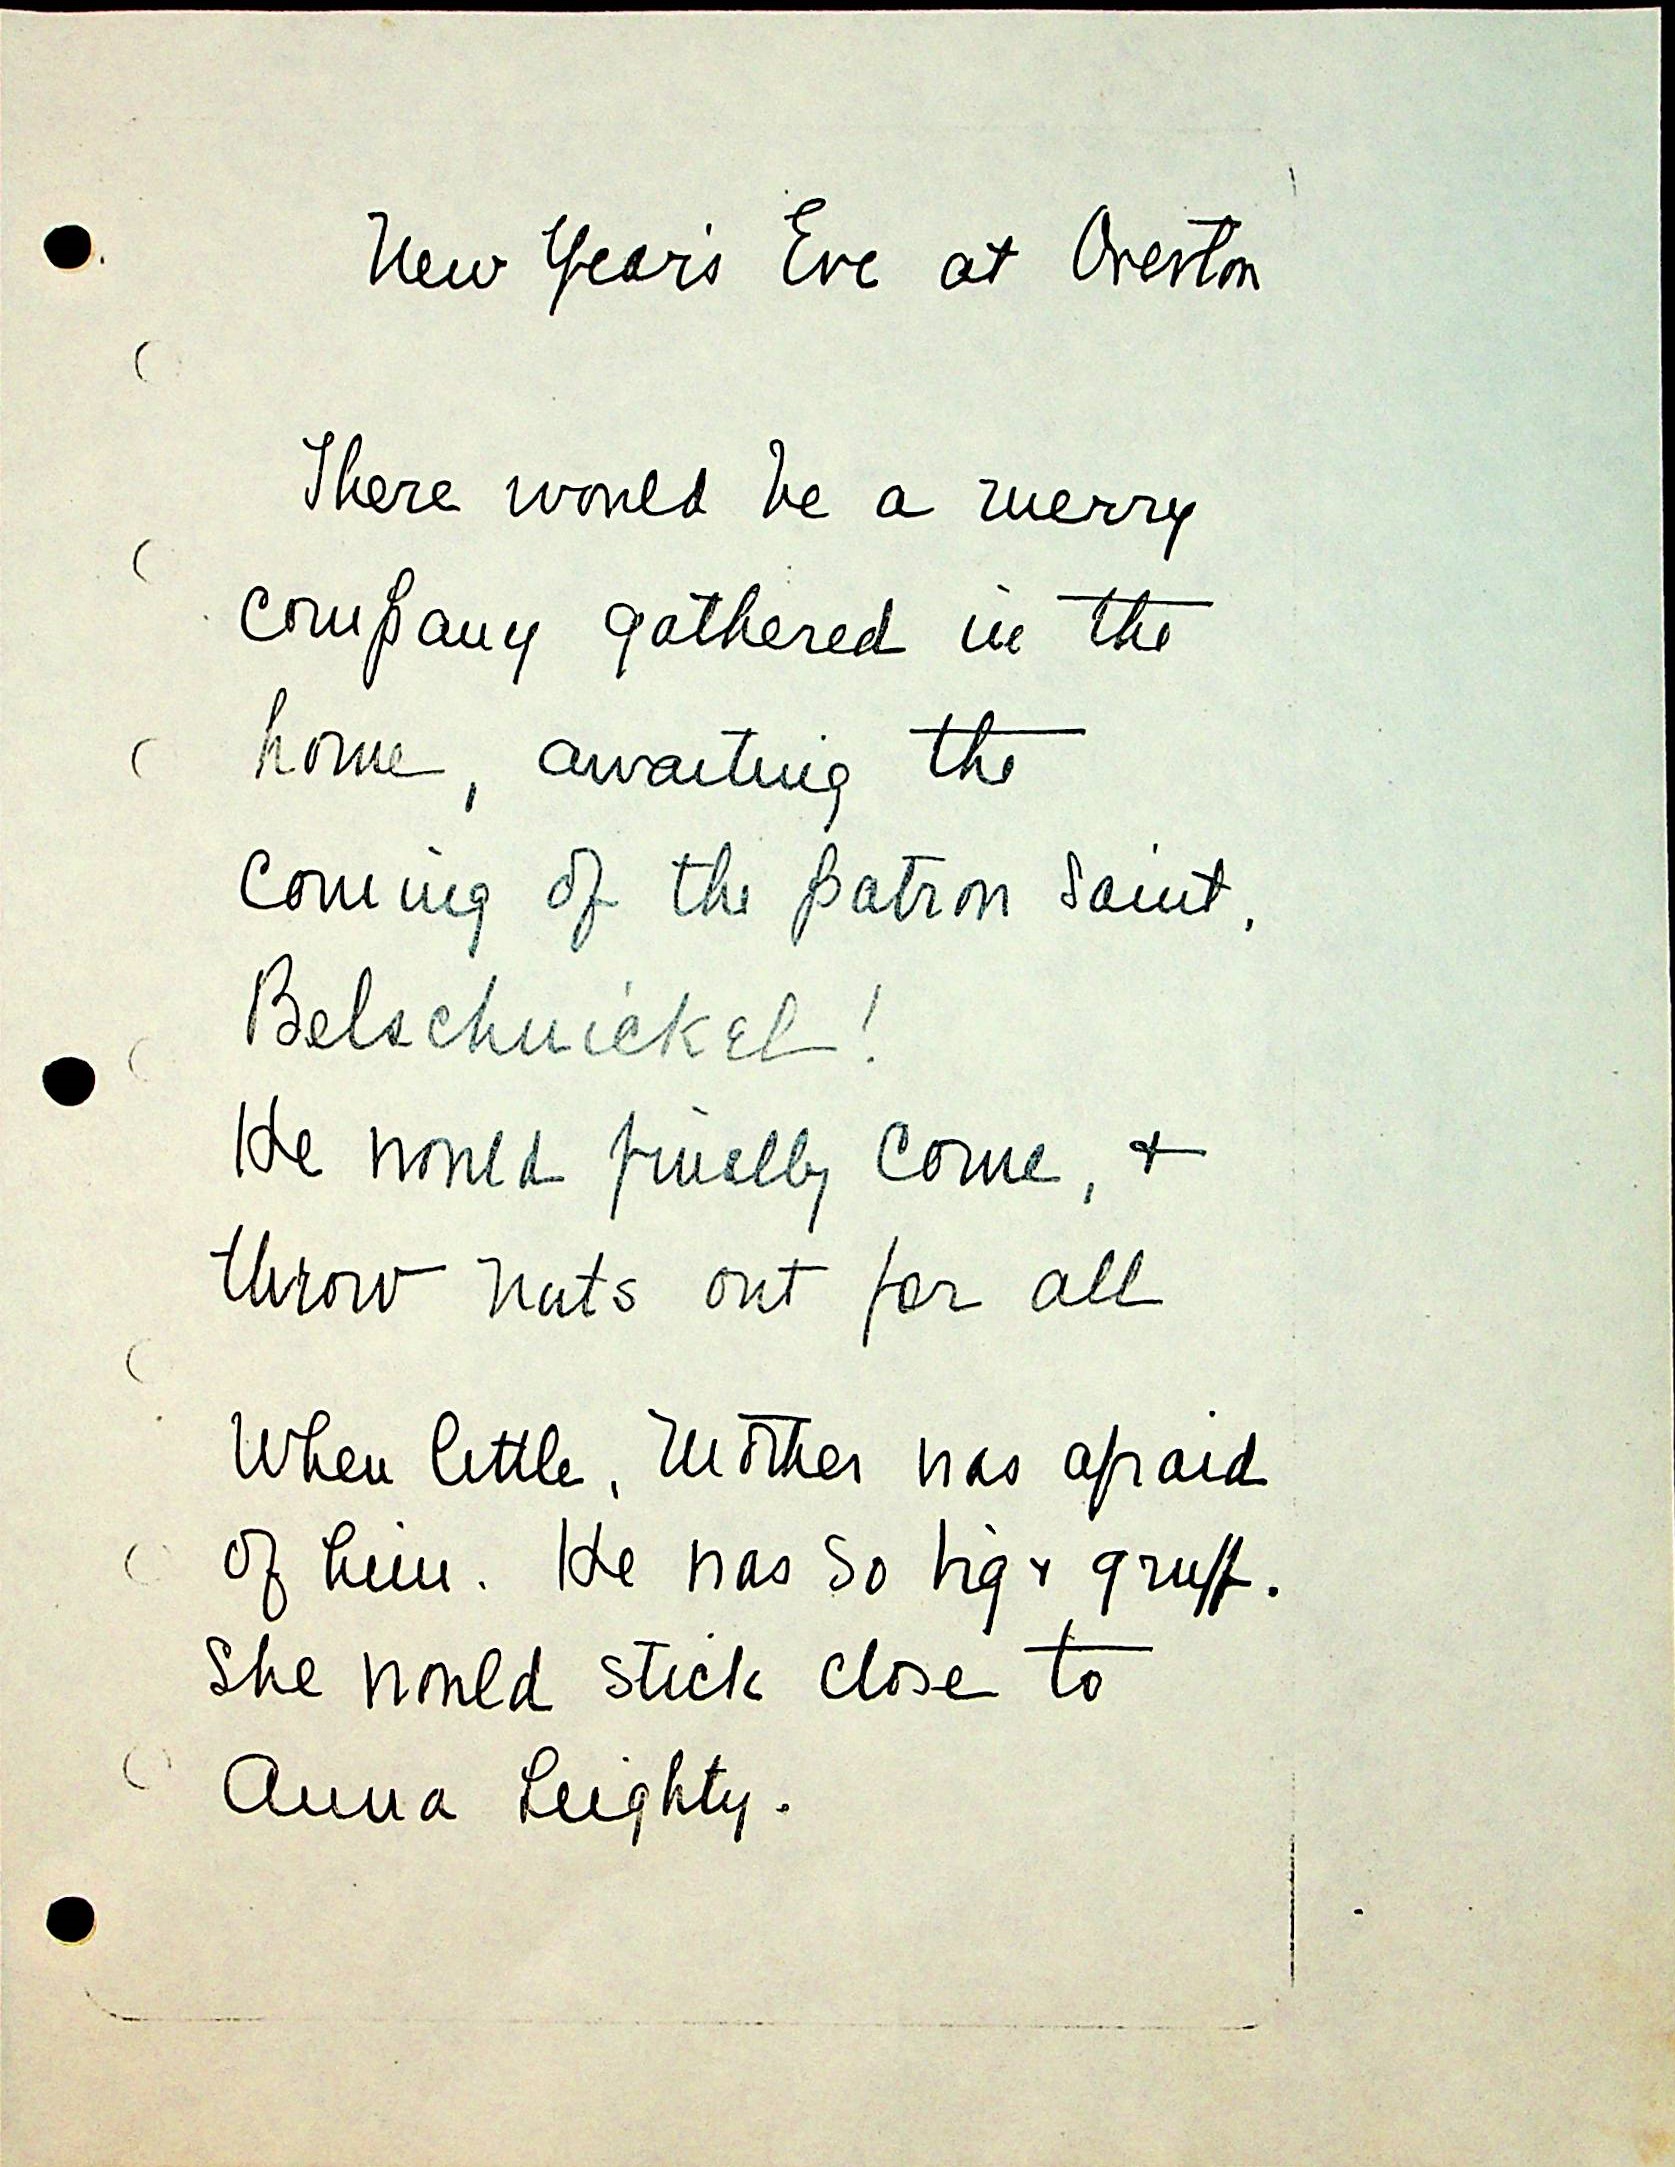 New Year's Eve at Overton
There would be a merry
company gathered in the
home, awaiting the
coming of the patron saint,
Belschnickel!
He would finally come, +
throw nuts out for all
When little, Mother was afraid
of him. He was so big + gruff.
She would stick close to
Anna Leighty.